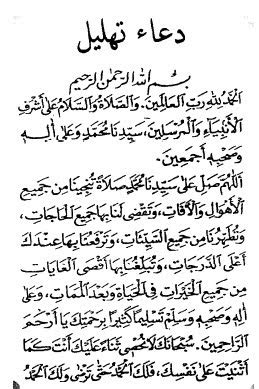 دعاء تهليل
بِسْمِ اللهِ الرَّحْمٰنِ الرَّحِيْمِ
اَلْحَمْدُ لِلّٰهِ رَبِّ الْعَالَمِيْنَ. وَالصَّلَاةُ وَالسَّلَامُ عَلَى أَشْرَفِ
الْأَنْبِيَاءِ وَالْمُرْسَلِيْنَ، سَيِّدِنَا مُحَمَّدٍ وَعَلَى اٰلِهِ
وَصَحْبِهِ أَجْمَعِيْنَ.
اَللّٰهُمَّ صَلِّ عَلَى سَيِّدِنَا مُحَمَّدٍ صَلَاةً تُنْجِيْنَا مِنْ جَمِيْعِ
الْأَهْوَالِ وَالْآفَاتِ، وَتَقْضِى لَنَا بِهَا جَمِيْعَ الْحَاجَاتِ،
وَتُطَهِّرُنَا مِنْ جَمِيْعِ السَّيِّئَاتِ، وَتَرْفَعُنَا بِهَا عِنْدَكَ
أَعْلَى الدَّرَجَاتِ، وَتُبَلِّغُنَا بِهَا أَقْصَى الْغَايَاتِ
مِنْ جَمِيْعِ الْخَيْرَاتِ فِى الْحَيَاةِ وَبَعْدَ الْمَمَاتِ، وَعَلَى
اٰلِهِ وَصَحْبِهِ وَسَلِّمْ تَسْلِيْمًا كَثِيْرًا بِرَحْمَتِكَ يَا أَرْحَمَ
الرَّاحِمِيْنَ. سُبْحَانَكَ لَا نُحْصِى ثَنَاءً عَلَيْكَ أَنْتَ كَمَا
أَثْنَيْتَ عَلَى نَفْسِكَ، فَلَكَ الْحَمْدُ حَتَّى تَرْضَى وَلَكَ الْحَمْدُ